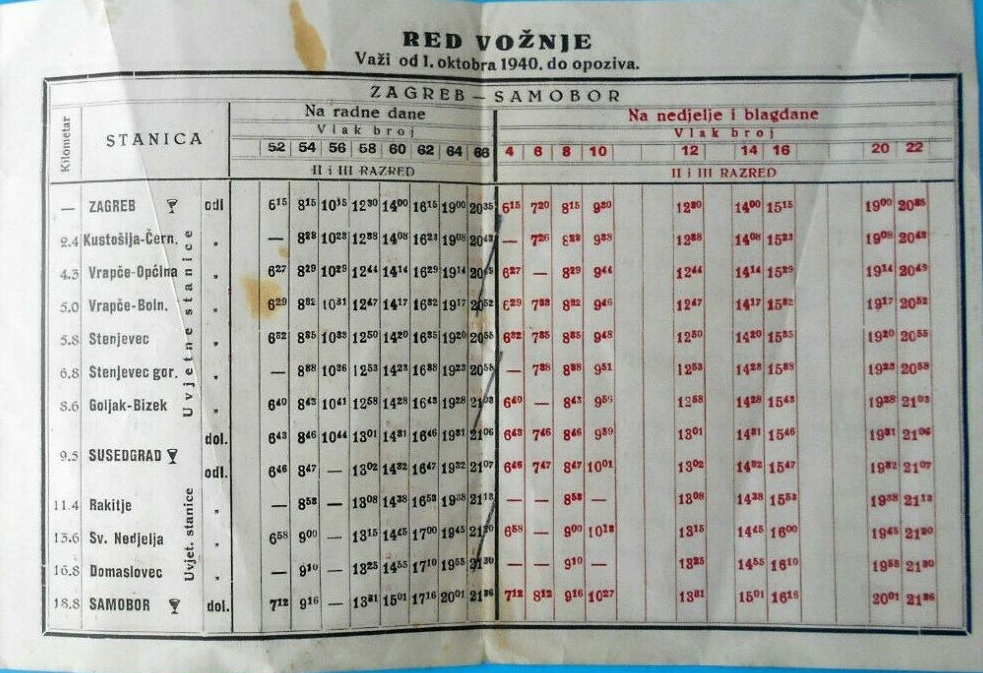 RED VOŽNJE
Važi od 1. oktobra 1940. do opoziva.
ZAGREB – SAMOBOR
Kilometar STANICA Na radne dane Na nedjelje i blagdane
Vlak broj Vlak broj
52 54 56 58 60 62 64 66 4 6 8 10 12 14 16 20 22
II i III RAZRED II i III RAZRED
— ZAGREB odl 6 15 8 15 10 15 12 30 14 00 16 15 19 00 20 35 6 15 7 20 8 15 9 30 12 30 14 00 15 15 19 00 20 35
Uvjetne stanice
2.4 Kustošija-Čern. „ — 8 28 10 23 12 38 14 08 16 23 19 08 20 43 — 7 26 9 38 12 38 14 08 15 23 19 08 20 43
4.3 Vrapče-Općina „ 6 27 8 29 10 29 12 44 14 14 16 29 19 14 20 49 6 27 — 8 29 9 44 12 44 14 14 15 29 19 14 20 49
5.0 Vrapče-Boln. „ 6 29 8 32 10 31 12 47 14 17 16 32 19 17 20 52 6 29 7 33 8 32 9 46 12 47 14 17 15 32 19 17 20 52
5.8 Stenjevec „ 6 32 8 35 10 33 12 50 14 20 16 35 19 20 20 55 6 32 7 35 8 35 9 48 12 50 14 20 15 35 19 20 20 55
6.8 Stenjevec gor. „ — 8 38 10 36 12 53 14 23 16 38 19 23 20 58 — 7 38 8 38 9 51 12 53 14 23 15 38 19 23 20 58
8.6 Goljak-Bizek „ 6 40 8 43 10 41 12 58 14 28 16 43 19 28 21 03 6 40 — 8 43 9 56 12 58 14 28 15 43 19 28 21 03
dol. 6 43 8 46 10 44 13 01 14 31 16 46 19 31 21 06 6 43 7 46 8 46 9 59 13 01 14 31 15 46 19 31 21 06
9.5 SUSEDGRAD
odl. 6 46 8 47 — 13 02 14 32 16 47 19 32 21 07 6 46 7 47 8 47 10 01 13 02 14 32 15 47 19 32 21 07
Uvjet. stanice
11.4 Rakitje „ — 8 53 — 13 08 14 38 16 53 19 38 21 13 — — 8 53 — 13 08 14 38 15 53 19 38 21 13
13.6 Sv. Nedjelja „ 6 58 9 00 — 13 15 14 45 17 00 19 45 21 20 6 58 — 9 00 10 13 13 15 14 45 16 00 19 45 21 20
16.8 Domaslovec „ — 9 10 — 13 25 14 55 17 10 19 55 21 30 — — 9 10 — 13 25 14 55 16 10 19 55 21 30
18.8 SAMOBOR dol. 7 12 9 16 — 13 31 15 01 17 16 20 01 21 36 7 12 8 12 9 16 10 27 13 31 15 01 16 16 20 01 21 36